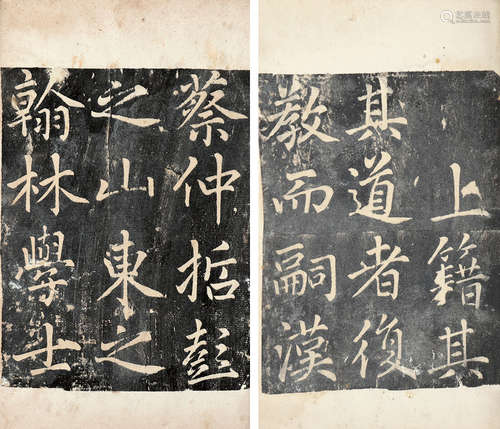 上籍其
其道者復
教而嗣漢
蔡仲哲彭
之山東之
翰林學士